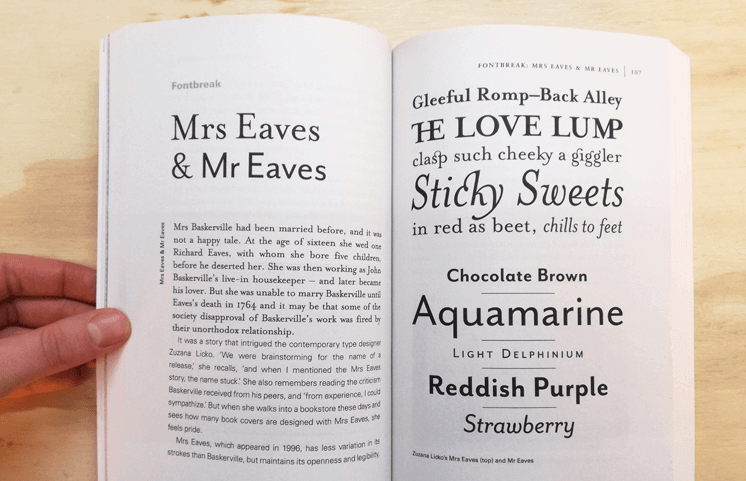 Fontbreak
Mrs Eaves
& Mr Eaves
Mrs Eaves & Mr Eaves
Mrs Baskerville had been married before, and it was
not a happy tale. At the age of sixteen she wed one
Richard Eaves, with whom she bore five children,
before he deserted her. She was then working as John
Baskerville's live-in housekeeper – and later became
his lover. But she was unable to marry Baskerville until
Eaves's death in 1764 and it may be that some of the
society disapproval of Baskerville's work was fired by
their unorthodox relationship.
It was a story that intrigued the contemporary type designer
Zuzana Licko. 'We were brainstorming for the name of a
release,' she recalls, 'and when I mentioned the Mrs Eaves
story, the name stuck.' She also remembers reading the criticism
Baskerville received from his peers, and 'from experience, I could
sympathize.' But when she walks into a bookstore these days and
sees how many book covers are designed with Mrs Eaves, she
feels pride.
Mrs Eaves, which appeared in 1996, has less variation in its
strokes than Baskerville, but maintains its openness and legibility,
FONTBREAK: MRS EAVES & MR EAVES | 107
Gleeful Romp–Back Alley
THE LOVE LUMP
clasp such cheeky a giggler
Sticky Sweets
in red as beet, chills to feet
Chocolate Brown
Aquamarine
LIGHT DELPHINIUM
Reddish Purple
Strawberry
Zuzana Licko's Mrs Eaves (top) and Mr Eaves